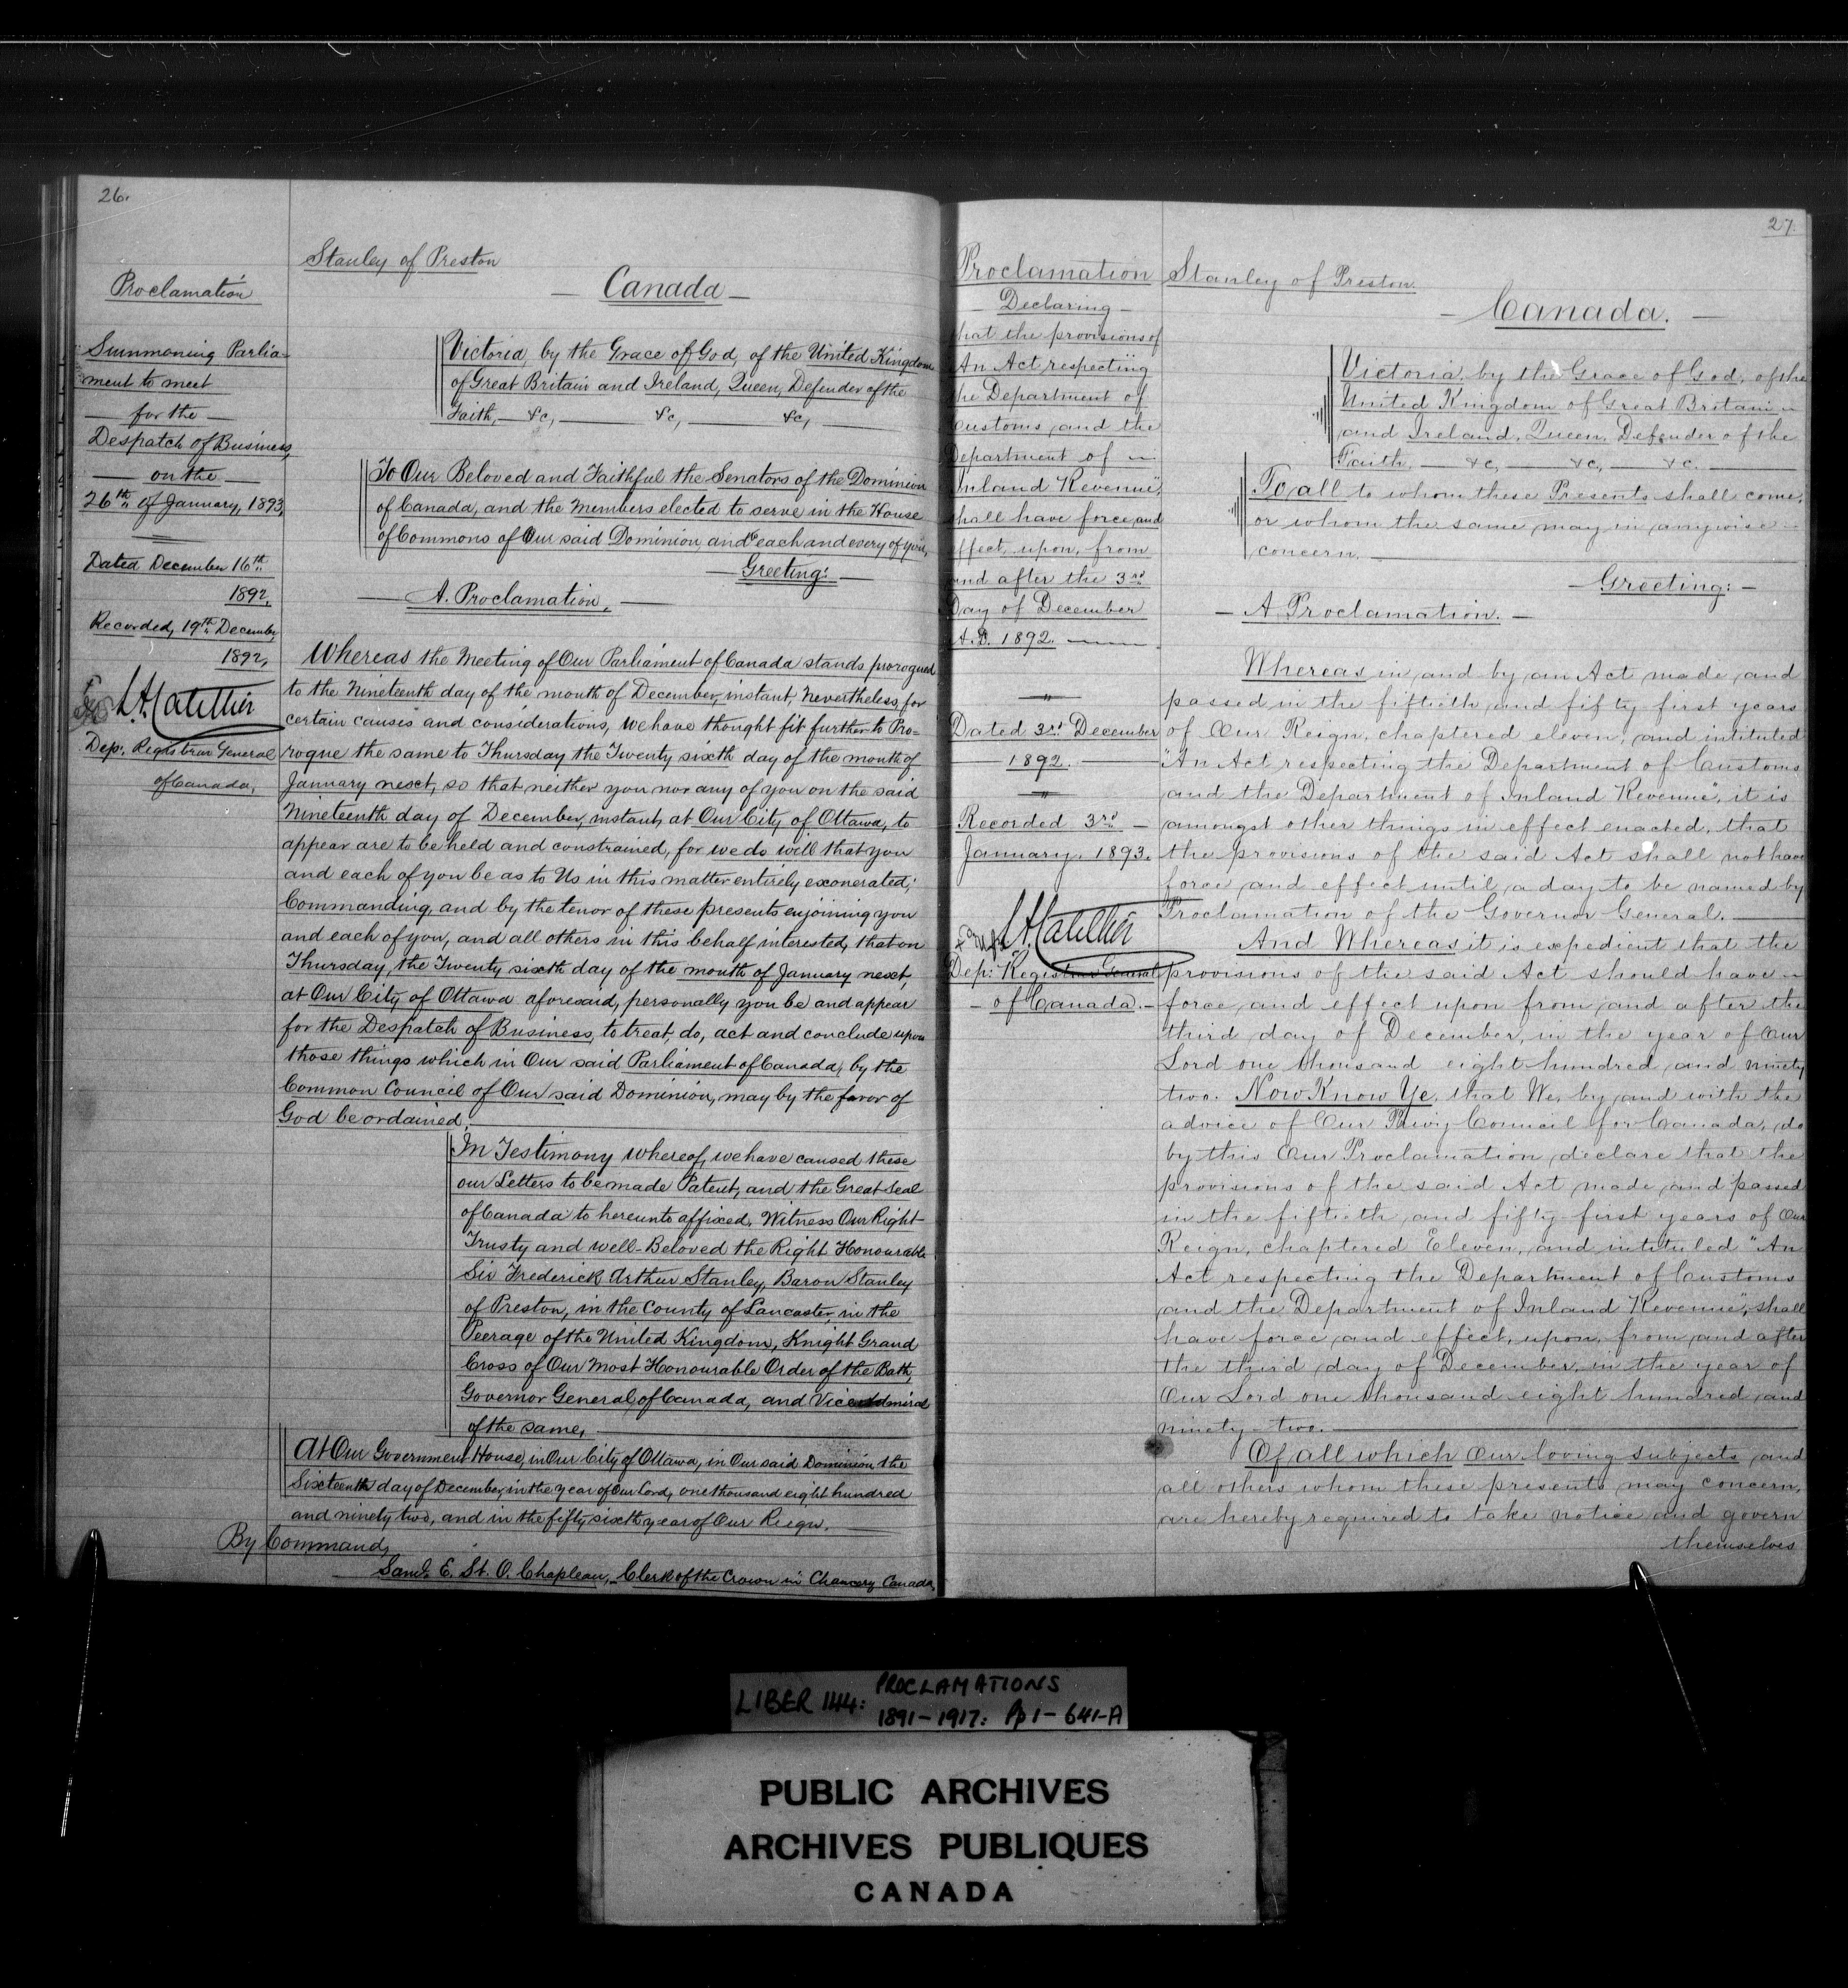 26.
Proclamation
Summoning Parlia-
ment to meet
for the
Despatch of Business,
on the
26th of January, 1893,
Dated December 16th
1892,
Recorded, 19th December
1892,
L.A. Catellier
Dep: Registrar General
of Canada,
Stanley of Preston
Canada
Victoria, by the Grace of God, of the United Kingdom
of Great Britain and Ireland, Queen, Defender of the
Faith, &c, &c, &c,
To Our Beloved and Faithful the Senators of the Dominion
of Canada, and the Members elected to serve in the House
of Commons of Our said Dominion, and to each and every of you,
Greeting:
A. Proclamation,
Whereas the Meeting of Our Parliament of Canada stands prorogued
to the Nineteenth day of the month of December, instant, Nevertheless, for
certain causes and considerations, we have thought fit further to Pro=
rogue the same to Thursday the Twenty sixth day of the month of
January next, so that neither you nor any of you on the said
Nineteenth day of December, instant, at Our City of Ottawa, to
appear are to be held and constrained, for we do will that you
and each of you be as to Us in this matter entirely exonerated;
Commanding, and by the tenor of these presents enjoining you
and each of you, and all others in this behalf interested, that on
Thursday, the Twenty sixth day of the month of January next,
at Our City of Ottawa aforesaid, personally you be and appear
for the Despatch of Business, to treat, do, act and conclude upon
those things which in Our said Parliament of Canada, by the
Common Council of Our said Dominion, may by the favor of
God be ordained.
In Testimony Whereof, we have caused these
our Letters to be made Patent, and the Great Seal
of Canada to hereunto affixed, Witness Our Right
Trusty and well-Beloved the Right Honourable
Sir Frederick Arthur Stanley, Baron Stanley
of Preston, in the County of Lancaster, in the
Peerage of the United Kingdom, Knight Grand
Cross of Our Most Honourable Order of the Bath,
Governor General of Canada, and Vice Admiral
of the same,
At Our Government House, in Our City of Ottawa, in Our said Dominion the
Sixteenth day of December, in the year of Our Lord, one thousand eight hundred
and ninety two, and in the fifty sixth year of Our Reign.
By Command,
Saml. E. St. O. Chapleau, Clerk of the Crown in Chancery Canada,
27.
Proclamation
Declaring
that the provisions of
An Act respecting
the Department of
Customs and the
Department of
Inland Revenue",
shall have force and
effect, upon, from
and after the 3rd
Day of December
A.D. 1892.
Dated 3rd December
1892.
Recorded 3rd
January. 1893.
L.A. Catellier
Dep: Registrar General
of Canada.
Stanley of Preston
Canada.
Victoria, by the Grace of God, of the
United Kingdom of Great Britain
and Ireland, Queen, Defender of the
Faith, &c, &c, &c.
To all to whom these Presents shall come,
or whom the same may in anywise
concern.
Greeting:
A Proclamation.
Whereas in and by an Act made and
passed in the fiftieth and fifty first years
of Our Reign, chaptered eleven, and intituled
"An Act respecting the Department of Customs
and the Department of Inland Revenue", it is
amongst other things in effect enacted, that
the provisions of the said Act shall not have
force and effect until a day to be named by
Proclamation of the Governor General.
And Whereas it is expedient that the
provisions of the said Act should have
force and effect upon from and after the
third day of December, in the year of Our
Lord one thousand eight hundred and ninety
two. Now Know Ye, that We, by and with the
advice of Our Privy Council for Canada, do
by this Our Proclamation declare that the
provisions of the said Act made and passed
in the fiftieth and fifty first years of Our
Reign, chaptered Eleven, and intituled "An
Act respecting the Department of Customs
and the Department of Inland Revenue", shall
have force and effect, upon, from and after
the third day of December, in the year of
Our Lord one thousand eight hundred and
ninety-two.
Of all which Our loving subjects and
all others whom these presents may concern,
are hereby required to take notice and govern
themselves
LIBER 144: PROCLAMATIONS
1891-1917: Pp 1-641-A
PUBLIC ARCHIVES
ARCHIVES PUBLIQUES
CANADA